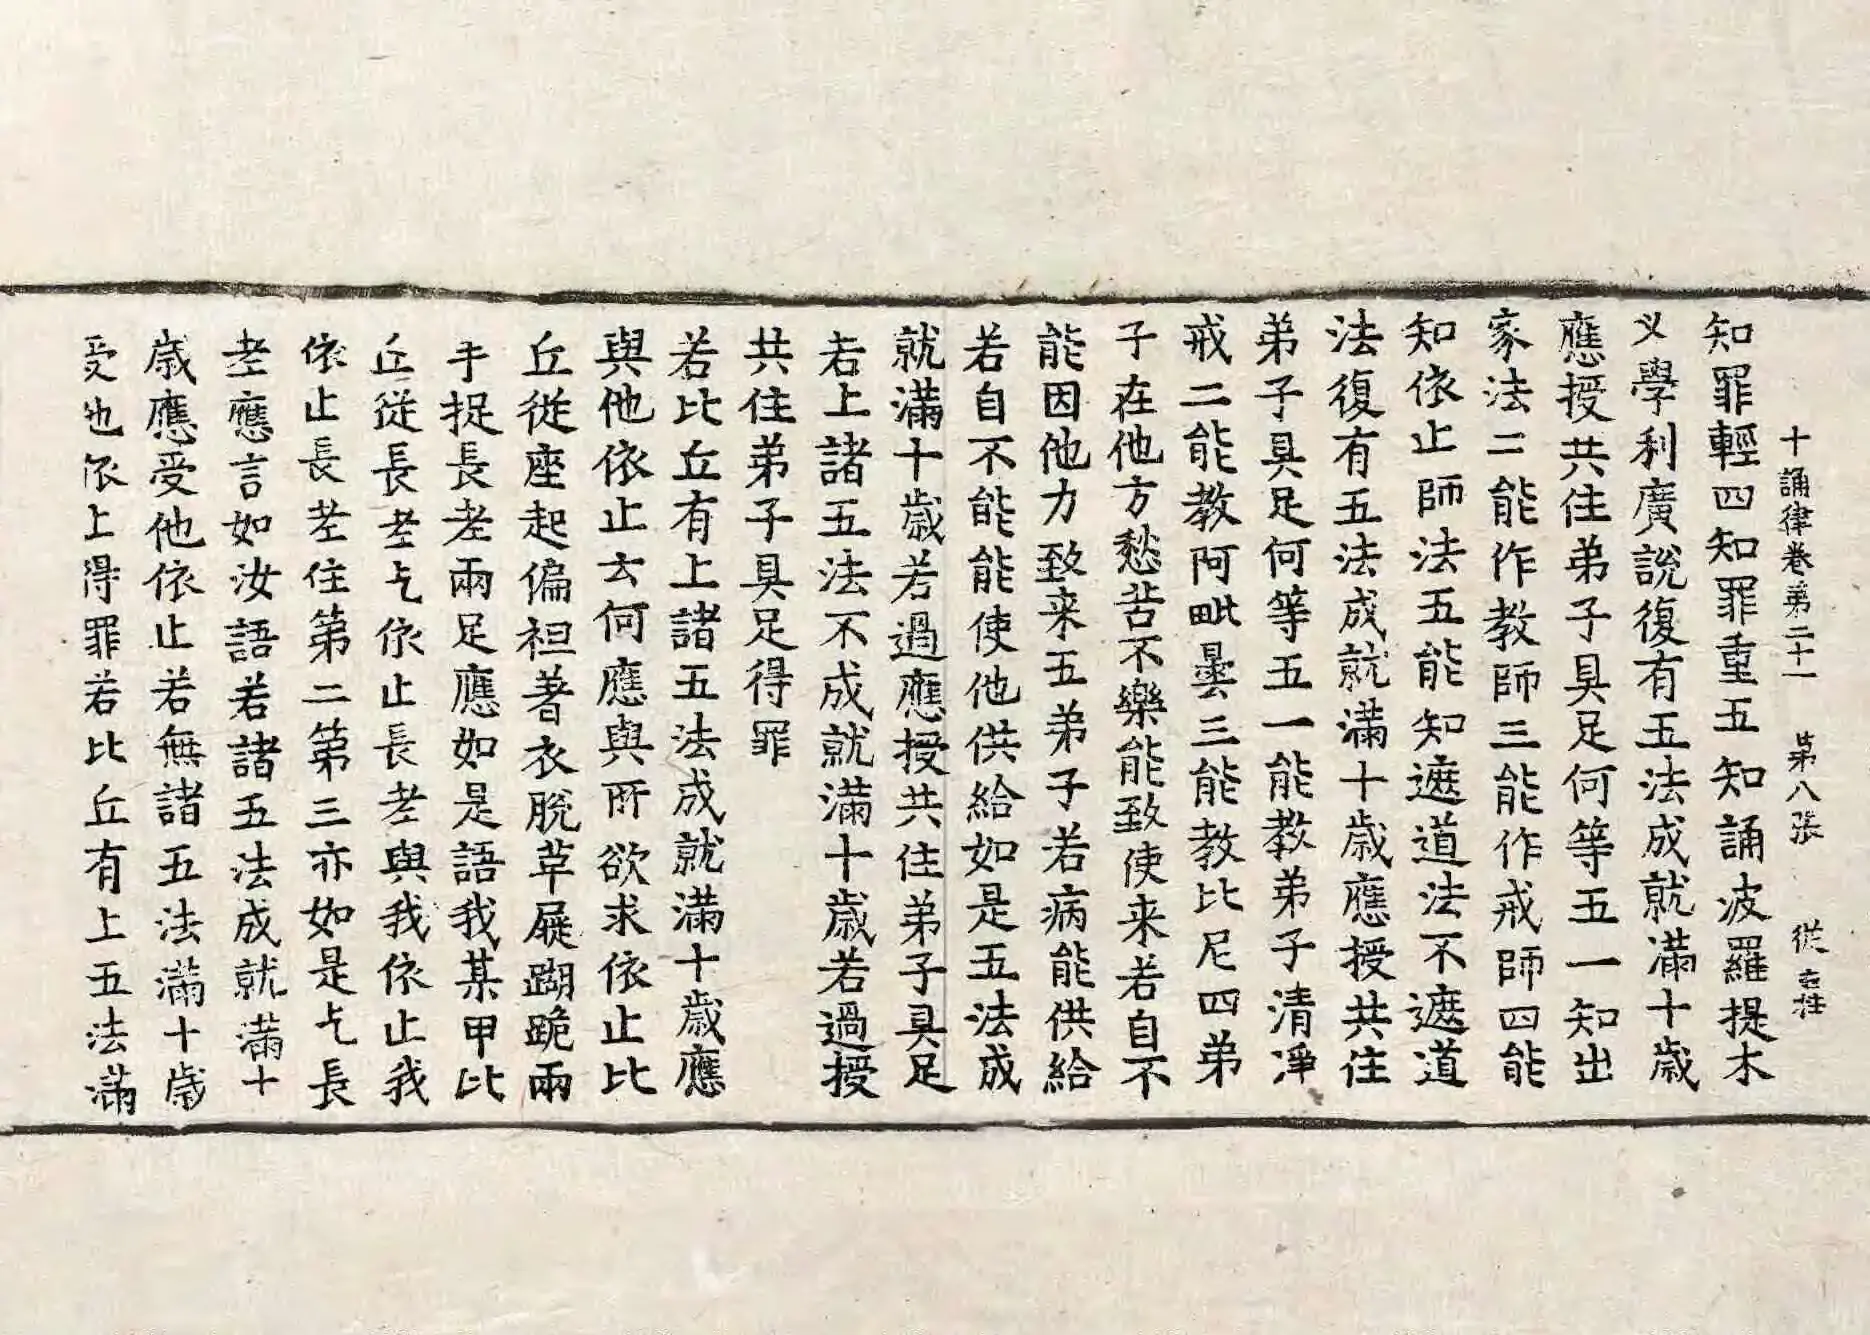 十誦律卷第二十一 第八張 從
知罪輕四知罪重五知誦波羅提木
义學利廣說復有五法成就滿十歲
應授共住弟子具足何等五一知出
家法二能作教師三能作戒師四能
知依止師法五能知遮道法不遮道
法復有五法成就滿十歲應授共住
弟子具足何等五一能教弟子清淨
戒二能教阿毗曇三能教比尼四弟
子在他方愁苦不樂能致使来若自不
能因他力致来五弟子若病能供給
若自不能能使他供給如是五法成
就滿十歲若過應授共住弟子具足
若上諸五法不成就滿十歲若過授
共住弟子具足得罪
若比丘有上諸五法成就滿十歲應
與他依止云何應與所欲求依止比
丘從座起偏袒著衣脫草屣𨄔跪兩
手捉長老兩足應如是語我某甲比
丘從長老乞依止長老與我依止我
依止長老住第二第三亦如是乞長
老應言如汝語若諸五法成就滿十
歲應受他依止若無諸五法滿十歲
受他依止得罪若比丘有上五法滿